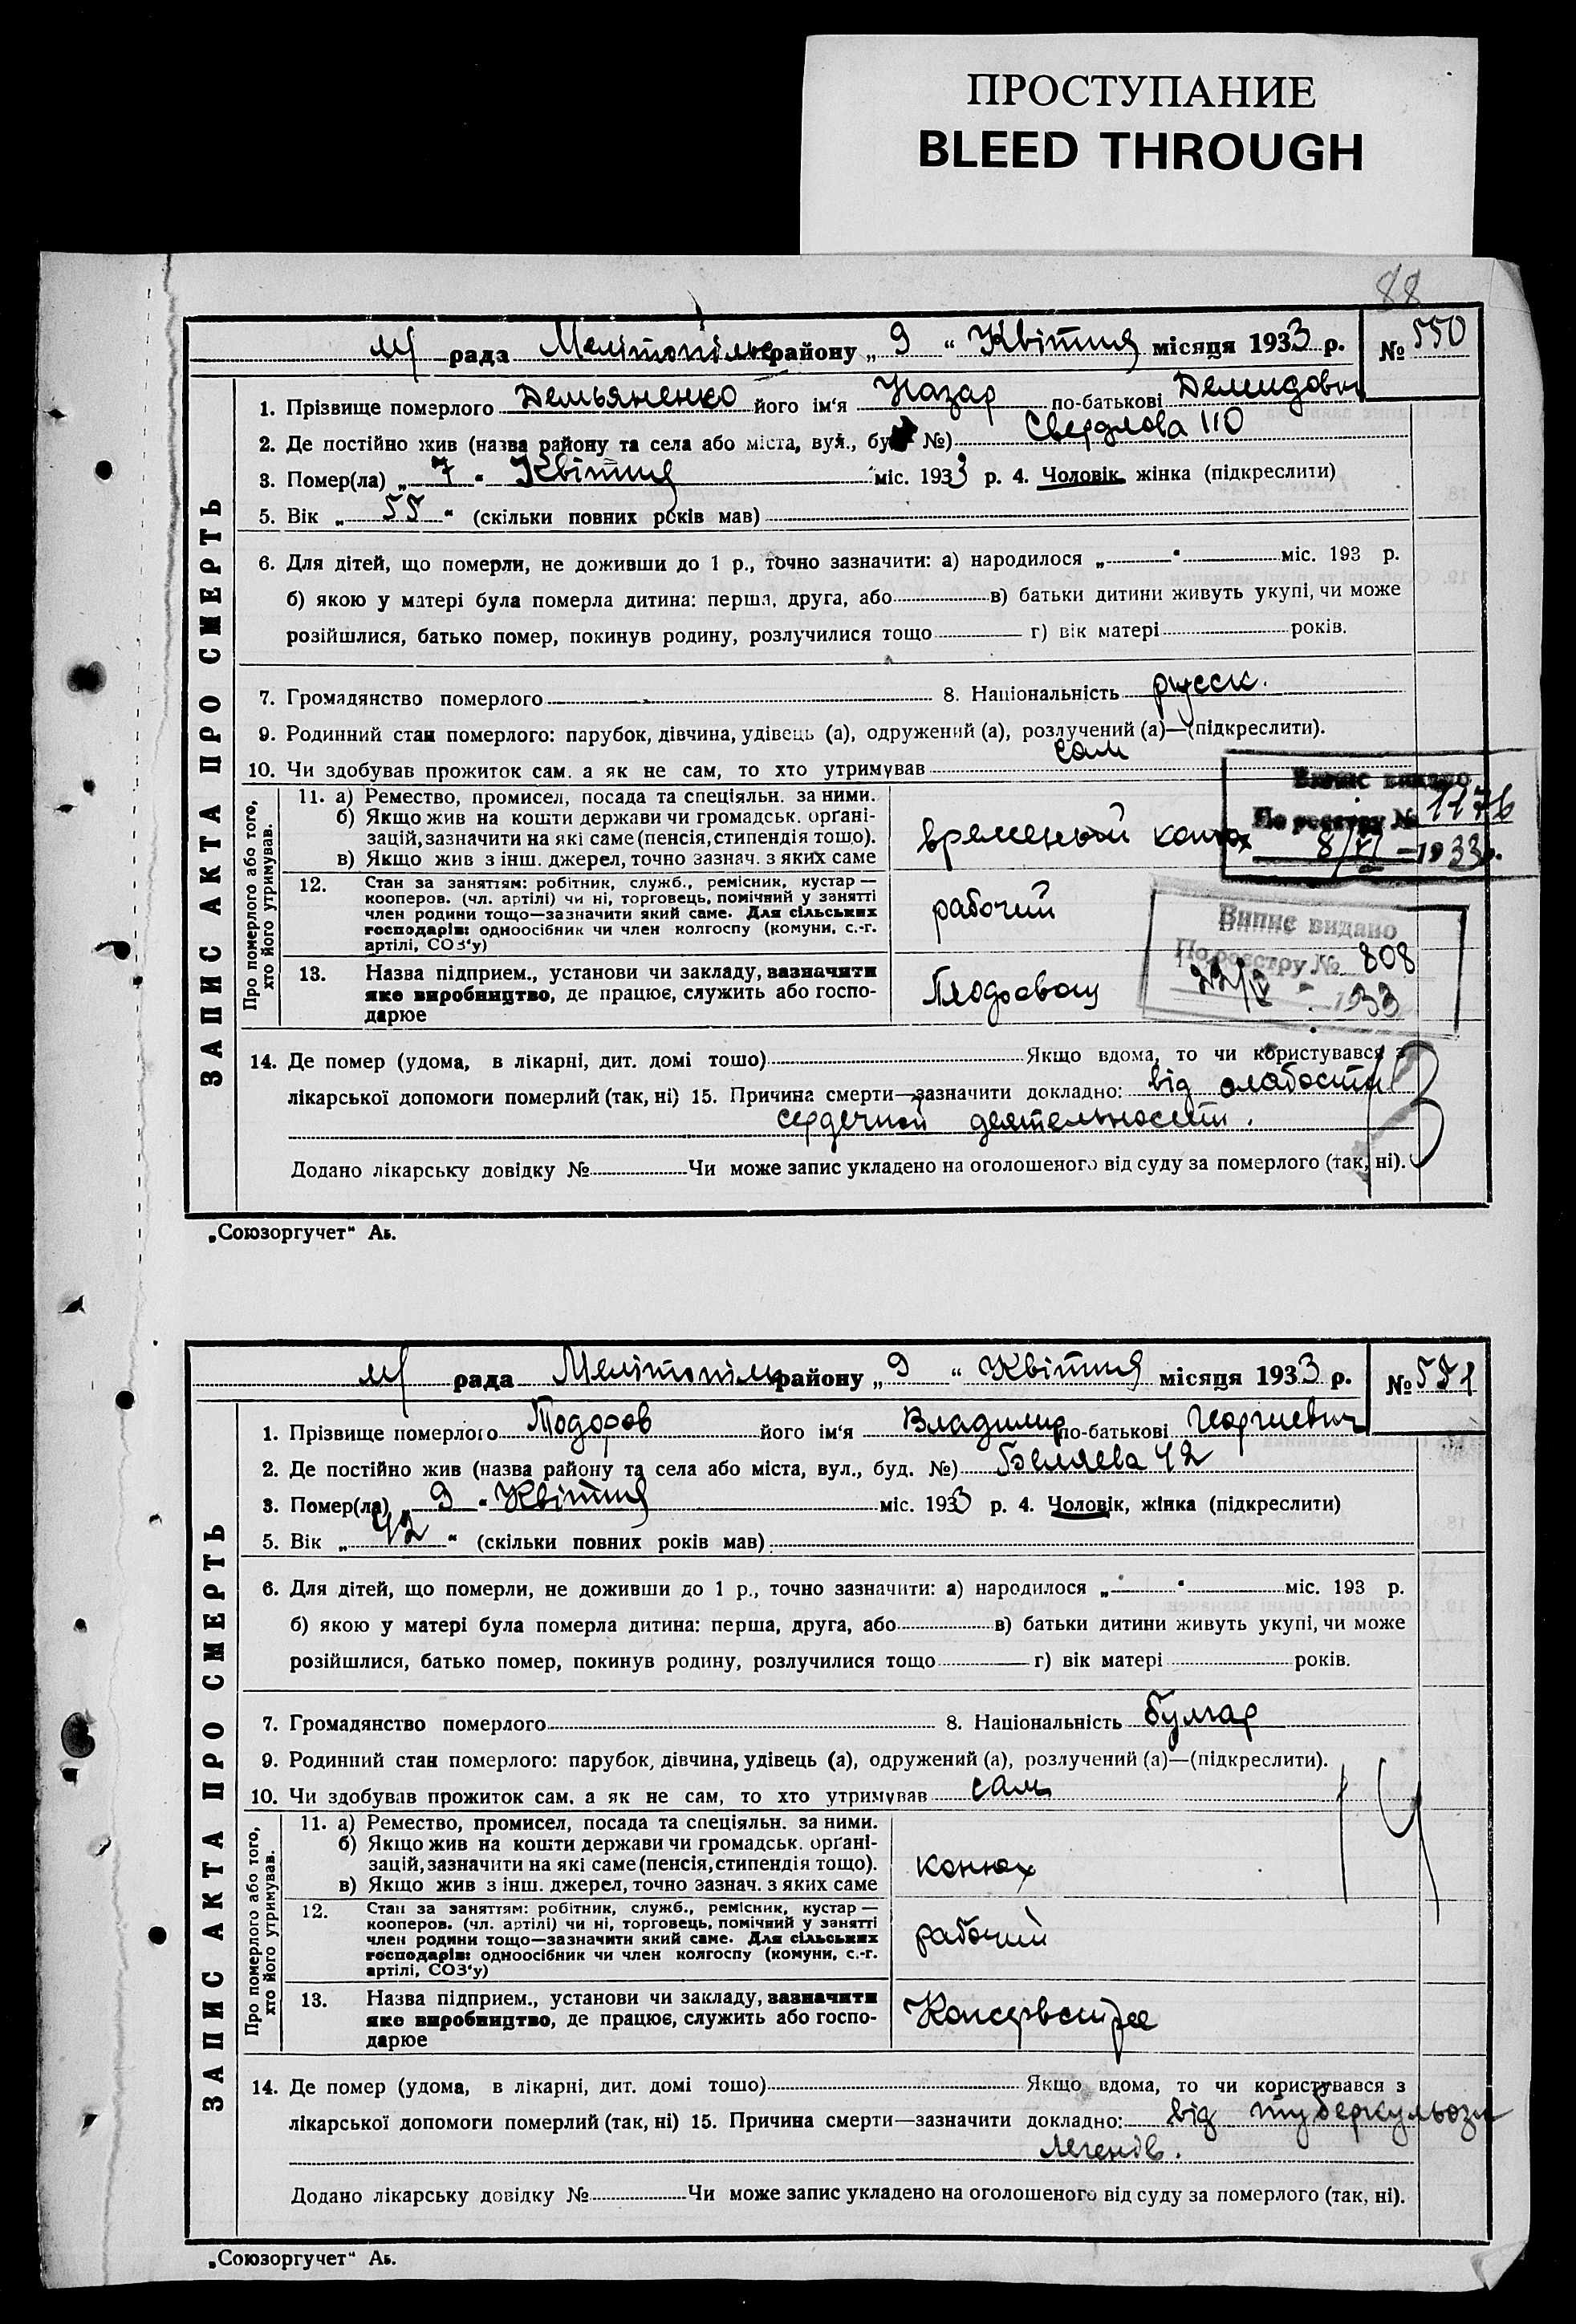 ПРОСТУПАНИЕ
BLEED THROUGH
88
м/ рада Мелітопільс району „ 9 “ Квітня місяця 1933 р. № 550
ЗАПИС АКТА ПРО СМЕРТЬ
1. Прізвище померлого Демьяненко його ім‘я Назар по-батькові Демидович
2. Де постійно жив (назва району та села або міста, вул., буд. №) Свердлова 110
3. Помер(ла) „ 7 “ Квітня міс. 1933 р. 4. Чоловік, жінка (підкреслити)
5. Вік „ 55 “ (скільки повних років мав)
6. Для дітей, що померли, не доживши до 1 р., точно зазначити: а) народилося „ “ міс. 193 р.
б) якою у матері була померла дитина: перша, друга, або в) батьки дитини живуть укупі, чи може
розійшлися, батько помер, покинув родину, розлучилися тощо г) вік матері років.
7. Громадянство померлого 8. Національність русск.
9. Родинний стан померлого: парубок, дівчина, удівець (а), одружений (а), розлучений (а)—(підкреслити).
10. Чи здобував прожиток сам, а як не сам, то хто утримував сам
Про померлого або того, хто його утримував.
11. а) Ремество, промисел, посада та спеціяльн. за ними.
б) Якщо жив на кошти держави чи громадськ. орґані-
зацій, зазначити на які саме (пенсія, стипендія тощо).
в) Якщо жив з інш. джерел, точно зазнач. з яких саме
временый конюх
Випис видано
По реєстру № 1176
8/VI – 1933 р.
12. Стан за заняттям: робітник, служб., ремісник, кустар —
кооперов. (чл. артілі) чи ні, торговець, помічний у занятті
член родини тощо—зазначити який саме. Для сільських
господарів: одноосібник чи член колгоспу (комуни, с.-г.
артілі, СОЗ‘у)
рабочий
Випис видано
По реєстру № 808
22/IV - 1933
13. Назва підприєм., установи чи закладу, зазначити
яке виробництво, де працює, служить або госпо-
дарює
14. Де помер (удома, в лікарні, дит. домі тощо) Якщо вдома, то чи користувався з
лікарської допомоги померлий (так, ні) 15. Причина смерти—зазначити докладно: від слабости
сердечной деятельности.
Додано лікарську довідку № Чи може запис укладено на оголошеного від суду за померлого (так, ні).
„Союзоргучет“ Аь.
м/ рада Мелітопільс району „ 9 “ Квітня місяця 1933 р. № 551
ЗАПИС АКТА ПРО СМЕРТЬ
1. Прізвище померлого Тодоров його ім‘я Владимир по-батькові Георгиевич
2. Де постійно жив (назва району та села або міста, вул., буд. №) Беляева 42
3. Помер(ла) „ 9 “ Квітня міс. 1933 р. 4. Чоловік, жінка (підкреслити)
5. Вік „ 42 “ (скільки повних років мав)
6. Для дітей, що померли, не доживши до 1 р., точно зазначити: а) народилося „ “ міс. 193 р.
б) якою у матері була померла дитина: перша, друга, або в) батьки дитини живуть укупі, чи може
розійшлися, батько помер, покинув родину, розлучилися тощо г) вік матері років.
7. Громадянство померлого 8. Національність булгар
9. Родинний стан померлого: парубок, дівчина, удівець (а), одружений (а), розлучений (а)—(підкреслити).
10. Чи здобував прожиток сам, а як не сам, то хто утримував сам
Про померлого або того, хто його утримував.
11. а) Ремество, промисел, посада та спеціяльн. за ними.
б) Якщо жив на кошти держави чи громадськ. орґані-
зацій, зазначити на які саме (пенсія, стипендія тощо).
в) Якщо жив з інш. джерел, точно зазнач. з яких саме
конюх
12. Стан за заняттям: робітник, служб., ремісник, кустар —
кооперов. (чл. артілі) чи ні, торговець, помічний у занятті
член родини тощо—зазначити який саме. Для сільських
господарів: одноосібник чи член колгоспу (комуни, с.-г.
артілі, СОЗ‘у)
рабочий
13. Назва підприєм., установи чи закладу, зазначити
яке виробництво, де працює, служить або госпо-
дарює
14. Де помер (удома, в лікарні, дит. домі тощо) Якщо вдома, то чи користувався з
лікарської допомоги померлий (так, ні) 15. Причина смерти—зазначити докладно: від туберкульози
легенів.
Додано лікарську довідку № Чи може запис укладено на оголошеного від суду за померлого (так, ні).
„Союзоргучет“ Аь.